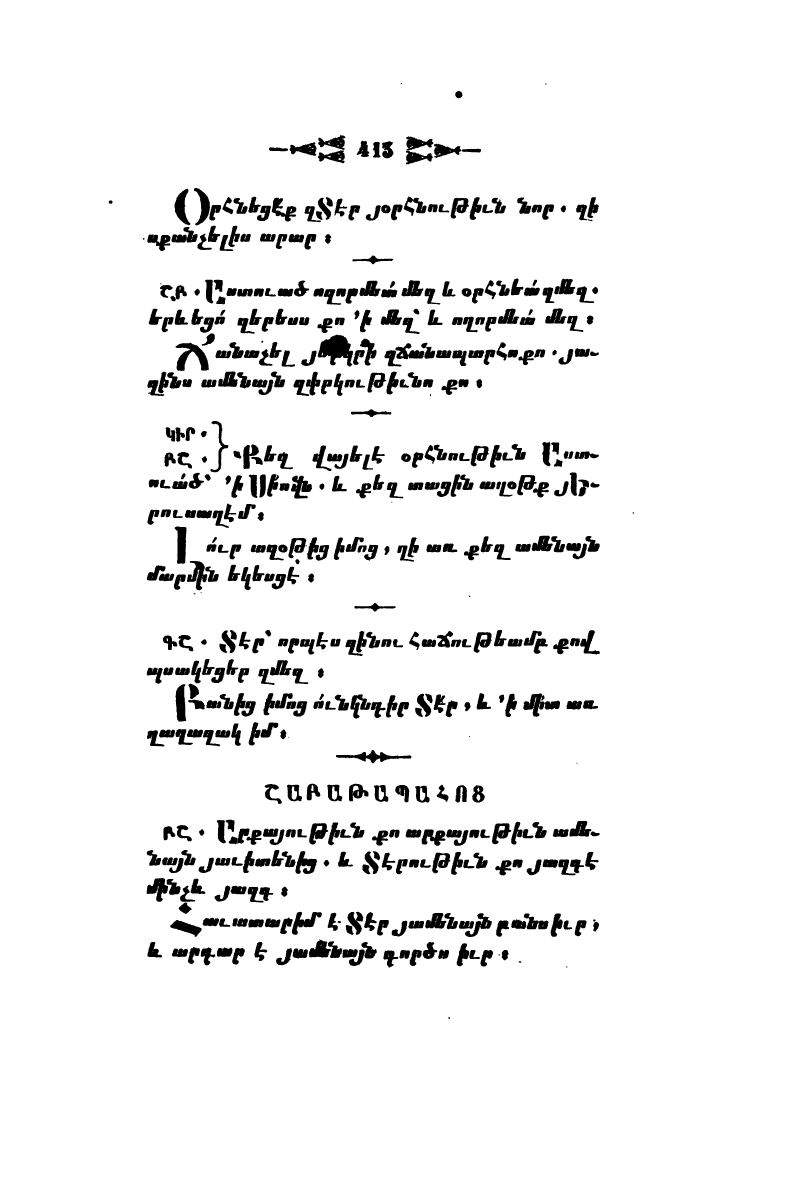 413
Օրհնեցէ՛ք զՏէր յօրհնութիւն նոր. զի
սքանչելիս արար։
ՇԲ. Աստուած ողորմեա՛ մեզ և օրհնեա՛ զմեզ.
երևեցո՛ զերեսս քո ՚ի մեզ՝ և ողորմեա՛ մեզ։
Ճանաչել յերկրի զճանապարհս քո. յա-
զինս ամենայն զփրկութիւնս քո։
ԿԻՐ.
ԲՇ. Քեզ վայելէ օրհնութիւն Աստ-
ուա՛ծ՝ ՚ի Սիովն. և քեզ տացին աղօթք յԵ-
րուսաղէմ։
Լո՛ւր աղօթից իմոց, զի առ քեզ ամենայն
մարմին եկեսցէ։
ԳՇ. Տէր՝ որպէս զինու հաճութեամբ քով
պսակեցեր զմեզ։
Բանից իմոց ո՛ւնկնդիր Տէր, և ՚ի միտ առ
զաղաղակ իմ։
ՇԱԲԱԹԱՊԱՀՈՑ
ԲՇ. Արքայութիւն քո արքայութիւն ամե-
նայն յաւիտենից. և Տէրութիւն քո յազգէ
մինչև յազգ։
Հաւատարիմ է Տէր յամենայն բանս իւր,
և արդար է յամենայն գործս իւր։